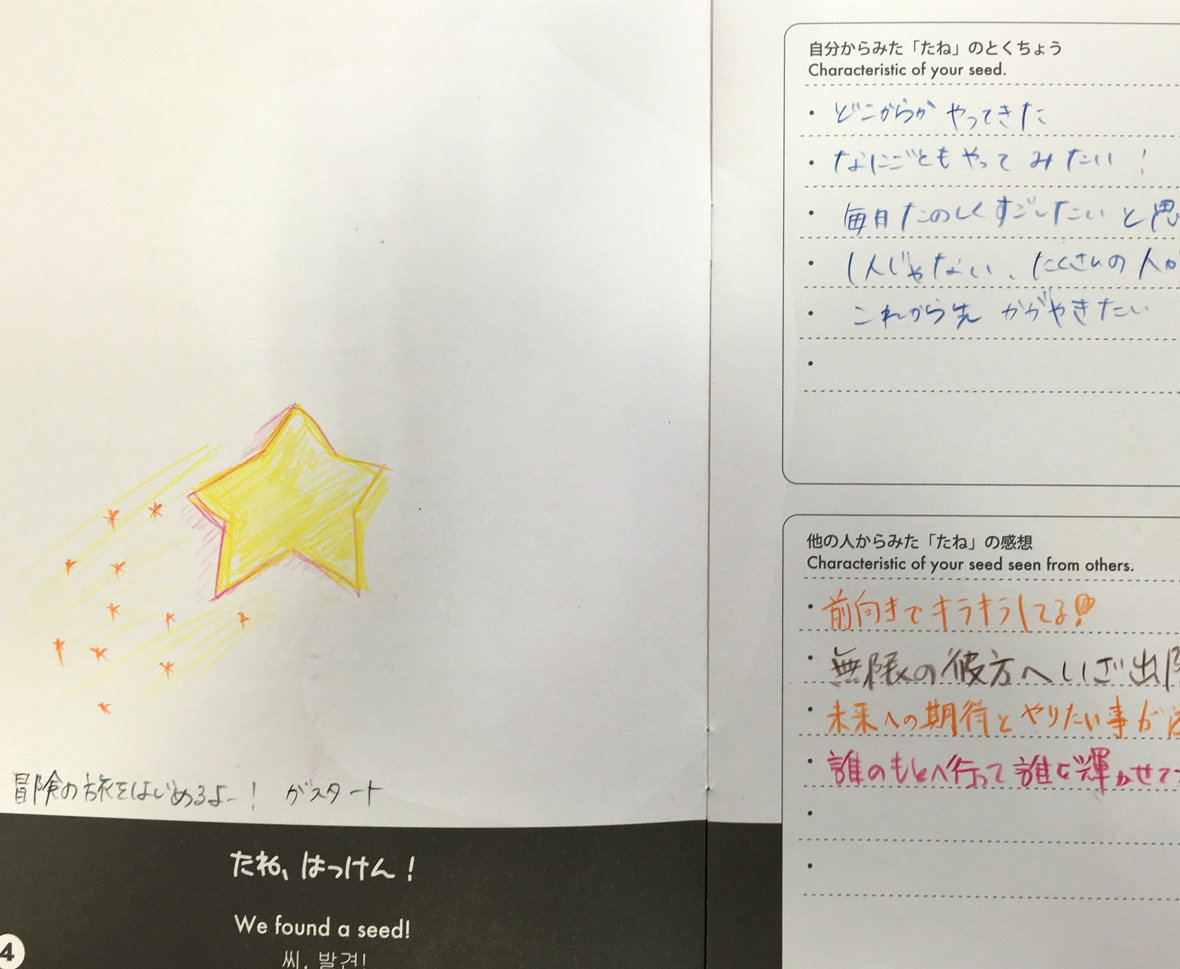 冒険の旅をはじめるよー! がスタート
たね、はっけん!
We found a seed!
씨, 발견!
4
自分からみた「たね」のとくちょう
Characteristic of your seed.
・どこからか やってきた
・なにごともやってみたい!
・毎日たのしくすごしたいと思
・1人じゃない、たくさんの人が
・これから先 かがやきたい
・
他の人からみた「たね」の感想
Characteristic of your seed seen from others.
・前向きでキラキラしてる!
・無限の彼方へいざ出
・未来への期待とやりたい事が
・誰のもとへ行って誰を輝かせて
・
・